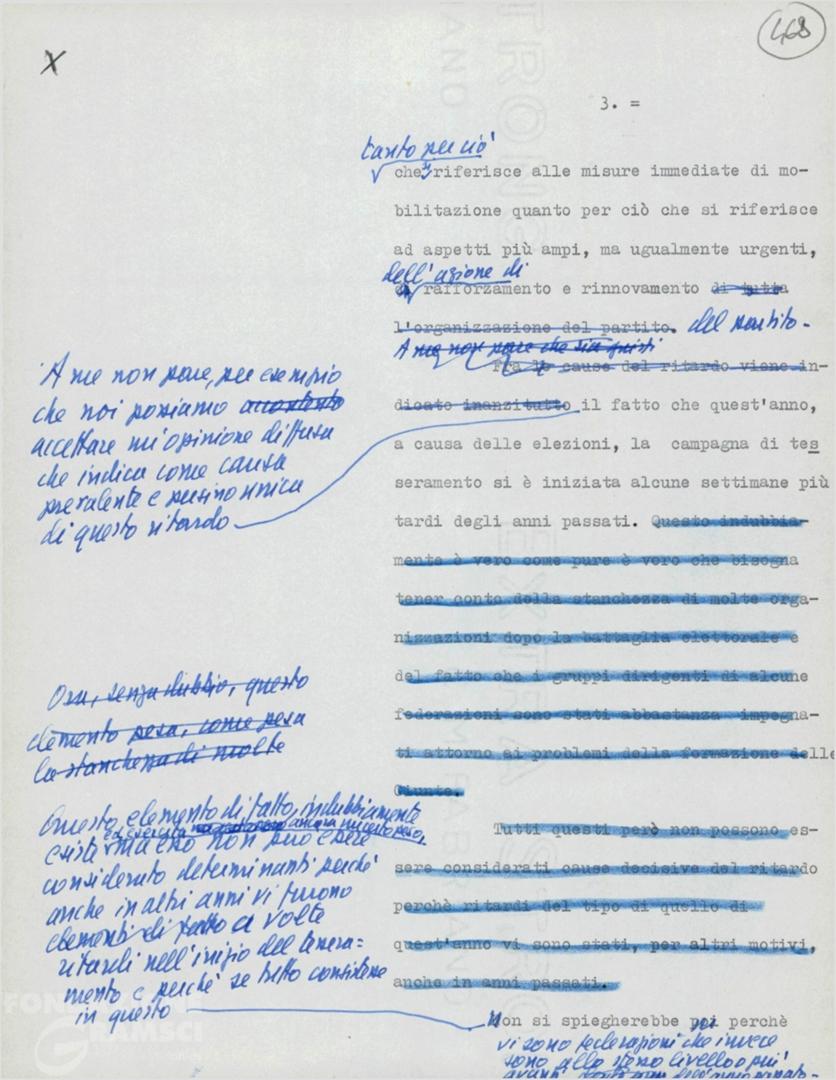 468
X
3. =
tanto per ciò
che si riferisce alle misure immediate di mo-
bilitazione quanto per ciò che si riferisce
ad aspetti più ampi, ma ugualmente urgenti,
dell'azione di
rafforzamento e rinnovamento di tutta
l'organizzazione del partito. del partito.
A me non pare che sia giusti
Fra le cause del ritardo viene in-
dicato inanzitutto il fatto che quest'anno,
a causa delle elezioni, la campagna di tes
seramento si è iniziata alcune settimane più
tardi degli anni passati. Questo indubbia-
mente è vero come pure è vero che bisogna
tener conto della stanchezza di molte orga-
nizzazioni dopo la battaglia elettorale e
del fatto che i gruppi dirigenti di alcune
federazioni sono stati abbastanza impegna-
ti attorno ai problemi della formazione delle
Giunte.
Tutti questi però non possono es-
sere considerati cause decisive del ritardo
perchè ritardi del tipo di quello di
quest'anno vi sono stati, per altri motivi,
anche in anni passati.
Non si spiegherebbe poi perchè
vi sono federazioni che invece
sono allo stesso livello o più
avanti
A me non pare, per esempio
che noi possiamo
accettare un'opinione diffusa
che indica come causa
prevalente e persino unica
di questo ritardo
Ora, senza dubbio, questo
elemento pesa, come pesa
la stanchezza di molte
Questo elemento di fatto, indubbiamente
ed esercita ancora un certo peso,
esiste ma esso non può essere
considerato determinanti perché
anche in altri anni vi furono
elementi di fatto a volte
ritardi nell'inizio del tessera=
mento e perché se tutto consistesse
in questo
FONDAZIONE
GRAMSCI